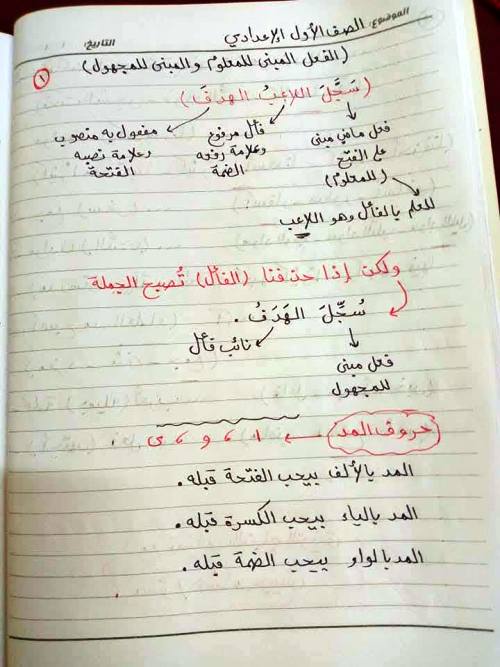 الموضوع:
التاريخ:
الصف الأول الإعدادي
(الفعل المبنى للمعلوم والمبنى للمجهول)
١
(سَجَّلَ اللاعبُ الهدفَ)
فعل ماضي مبنى
على الفتح
(للمعلوم)
فاعل مرفوع
وعلامة رفعه
الضمة
مفعول به منصوب
وعلامة نصبه
الفتحة
للعلم بالفاعل وهو اللاعب
ولكن إذا حذفنا (الفاعل) تُصبح الجملة
سُجِّلَ الهَدَفُ.
نائب فاعل
فعل مبنى
للمجهول
حروف المد ← ا ، و ، ى
المد بالألف يبحب الفتحة قبله.
المد بالياء يبحب الكسرة قبله.
المد بالواو يبحب الضمة قبله.